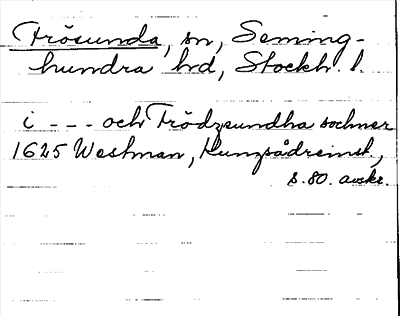 Frösunda, sn, Seming-
hundra hd, Stockh. l.
i --- och Frödzsundha sochner
1625 Westman, Kungsådreinst.,
s. 80. avskr.